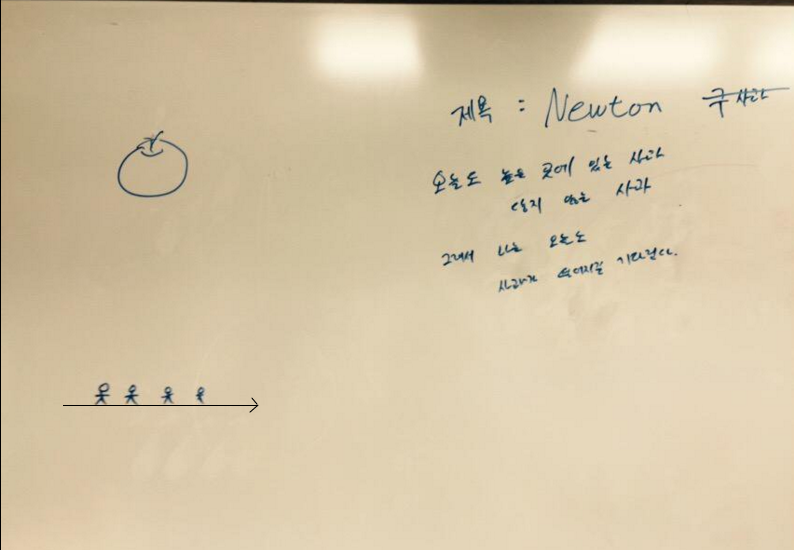 제목 : Newton 구 사과
오늘도 높은 곳에 있는 사과
닿지 않는 사과
그래서 나는 오늘도
사과가 떨어지길 기다린다.